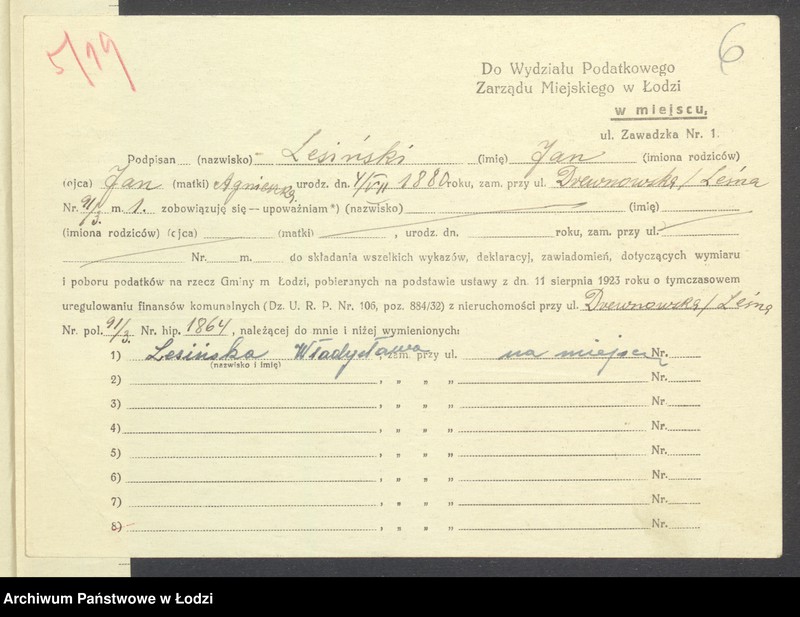 5/19
6
Do Wydziału Podatkowego
Zarządu Miejskiego w Łodzi
w miejscu,
ul. Zawadzka Nr. 1.
Podpisan (nazwisko) Lesiński (imię) Jan (imiona rodziców)
(ojca) Jan (matki) Agnieszka urodz. dn. 4/VII 1880 roku, zam. przy ul. Drewnowska/Leśna
Nr. 91/3. m. 1. zobowiązuję się — upoważniam *) (nazwisko) (imię)
(imiona rodziców) (ojca) (matki) , urodz. dn. roku, zam. przy ul.
Nr. m. do składania wszelkich wykazów, deklaracyj, zawiadomień, dotyczących wymiaru
i poboru podatków na rzecz Gminy m Łodzi, pobieranych na podstawie ustawy z dn. 11 sierpnia 1923 roku o tymczasowem
uregulowaniu finansów komunalnych (Dz. U. R. P. Nr. 106, poz. 884/32) z nieruchomości przy ul. Drewnowska/Leśna
Nr. pol. 91/3. Nr. hip. 1864, należącej do mnie i niżej wymienionych:
1) Lesińska Władysława, zam. przy ul. na miejscu Nr.
(nazwisko i imię)
2) , „ „ „ Nr.
3) , „ „ „ Nr.
4) , „ „ „ Nr.
5) , „ „ „ Nr.
6) , „ „ „ Nr.
7) , „ „ „ Nr.
8) , „ „ „ Nr.
Archiwum Państwowe w Łodzi